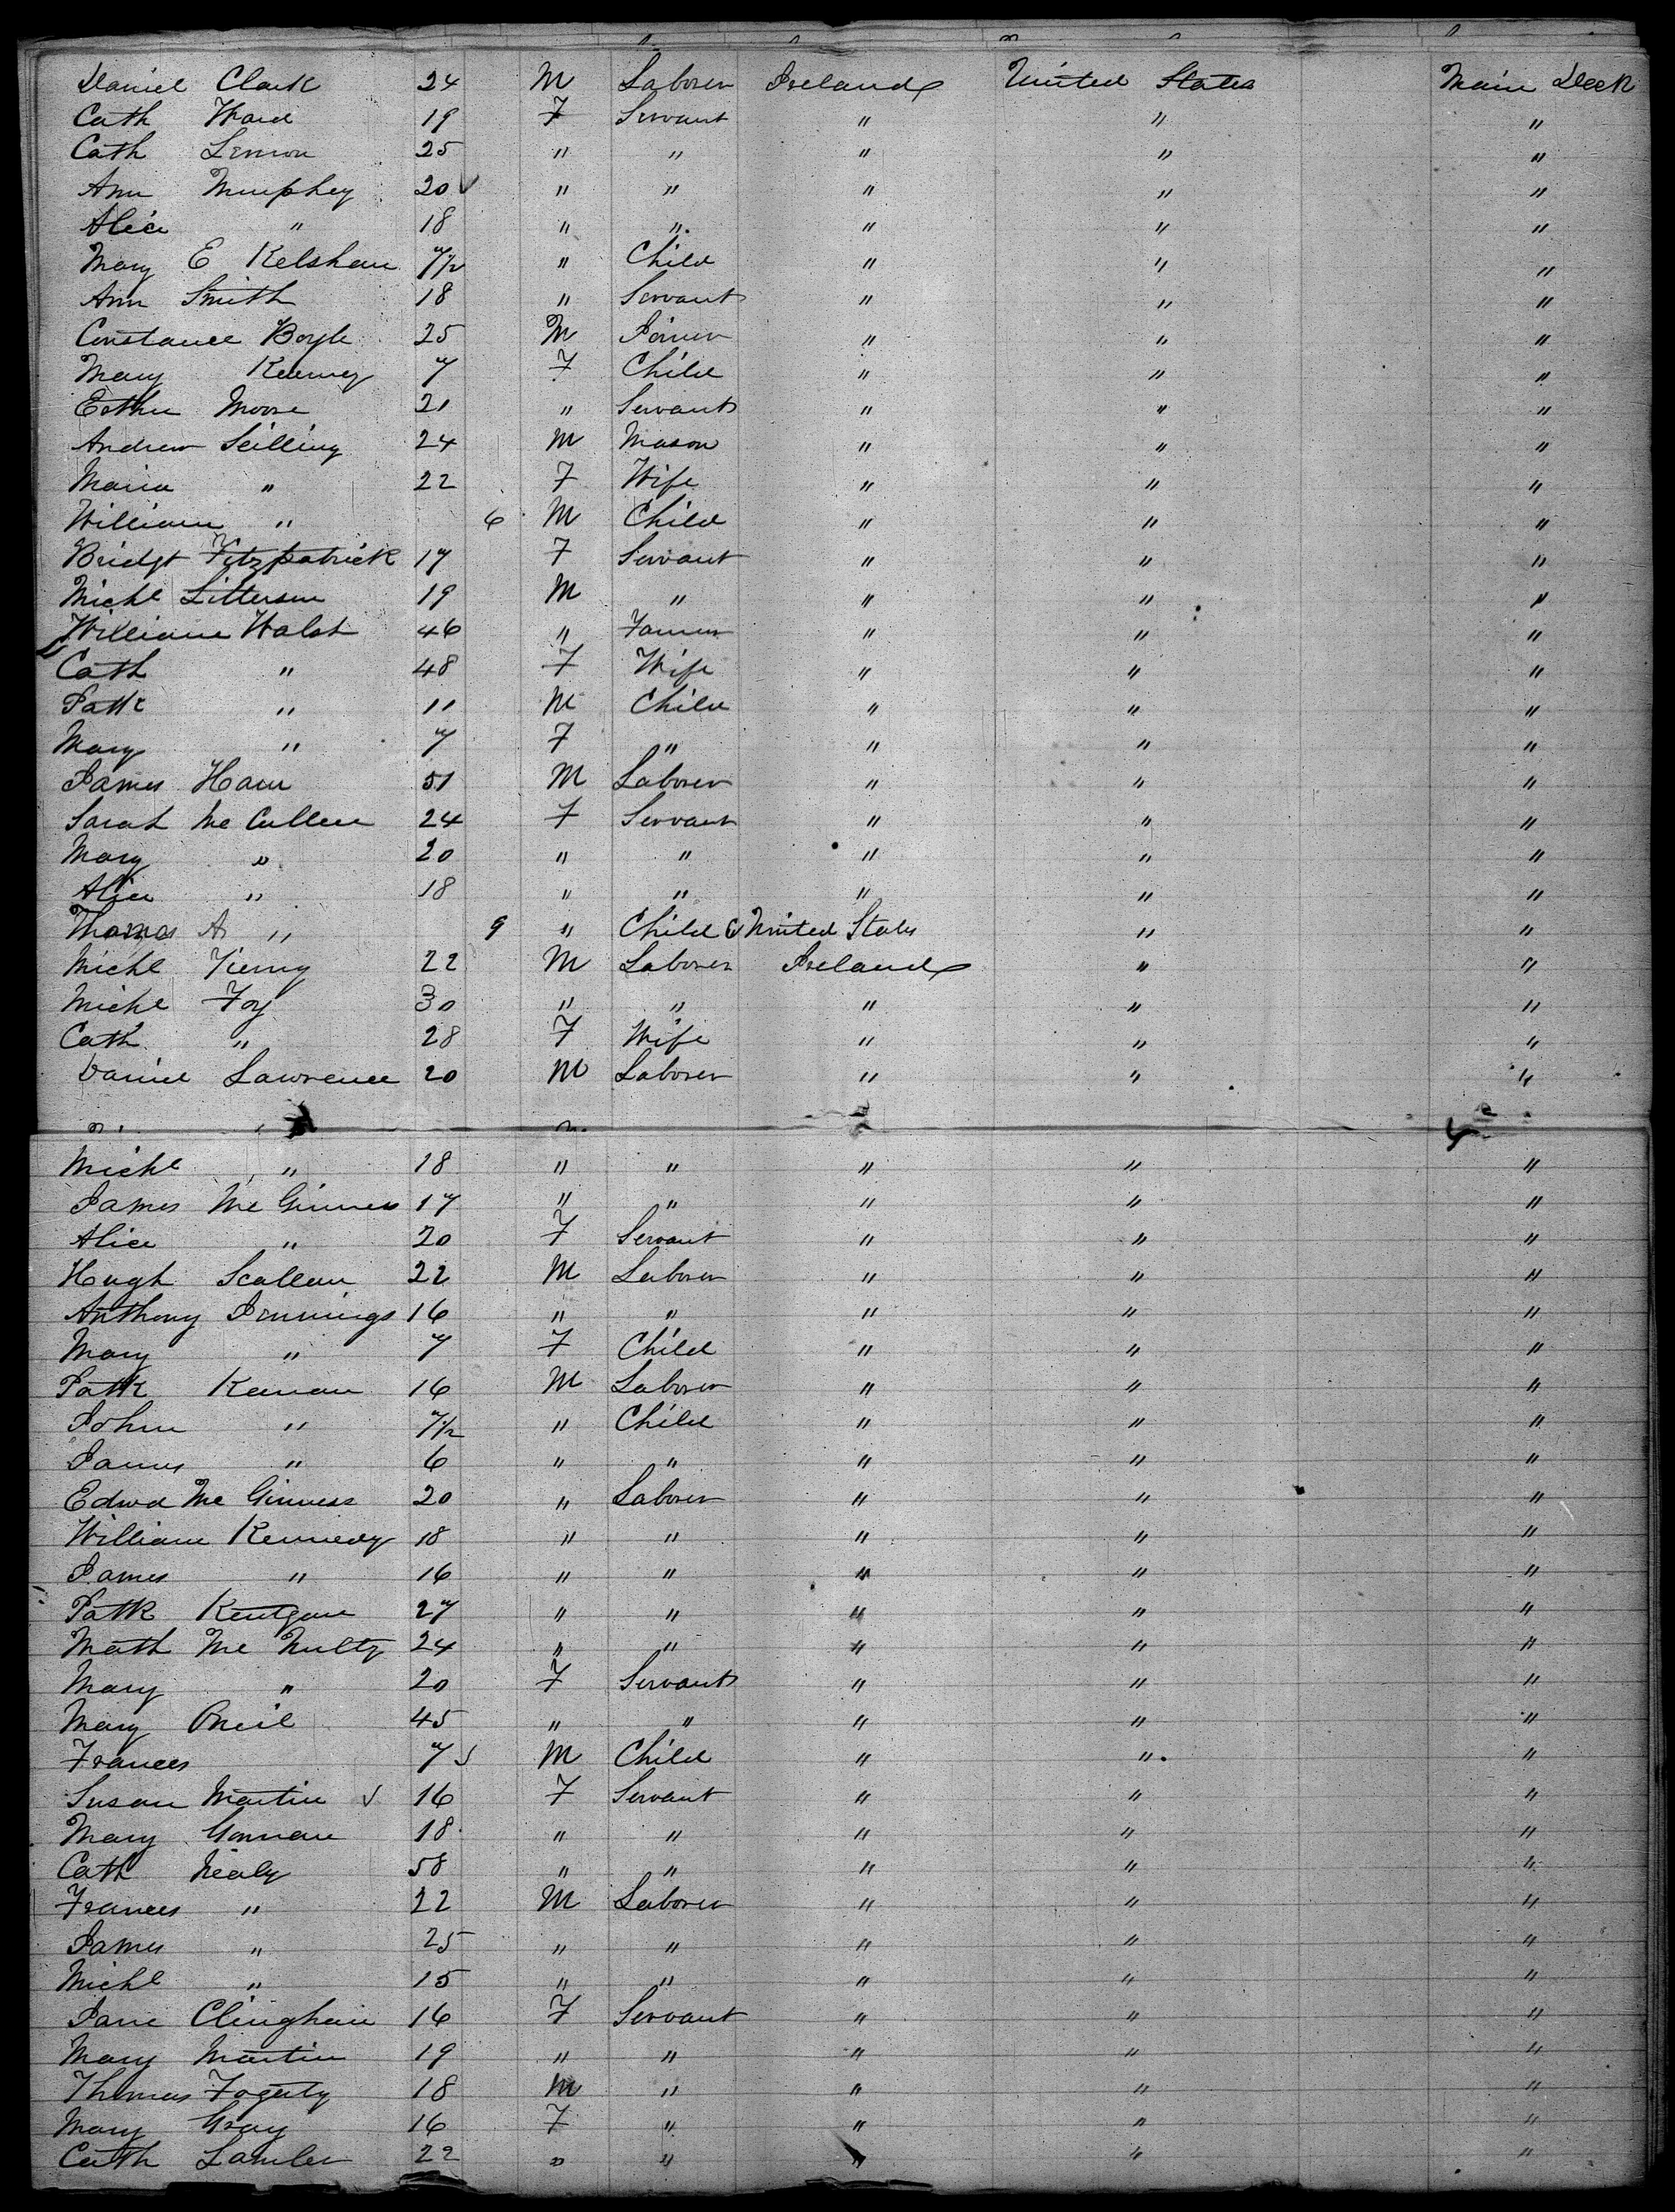 Daniel Clark 24 M Laborer Ireland United States Main Deck
Cath Ward 19 F Servant " " "
Cath Lennon 25 " " " " "
Ann Murphey 20 " " " " "
Alice " 18 " " " " "
Mary E Kelshaw 7/12 " Child " " "
Ann Smith 18 " Servant " " "
Constance Boyle 25 M Joiner " " "
Mary Kearney 7 F Child " " "
Esther Moore 21 " Servant " " "
Andrew Seilling 24 M Mason " " "
Maria " 22 F Wife " " "
William " 6 M Child " " "
Bridgt Fitzpatrick 17 F Servant " " "
Michl Litterson 19 M " " " "
William Walsh 46 " Farmer " " "
Cath " 48 F Wife " " "
Patk " 11 M Child " " "
Mary " 7 F " " " "
James Ham 51 M Laborer " " "
Sarah Mc Cullen 24 F Servant " " "
Mary " 20 " " " " "
Alice " 18 " " " " "
Thomas A " 9 " Child United States " "
Michl Tierny 22 M Laborer Ireland " "
Michl Foy 30 " " " " "
Cath " 28 F Wife " " "
Daniel Lawrence 20 M Laborer " " "
Michl " 18 " " " " "
James Mc Ginness 17 " " " " "
Alice " 20 F Servant " " "
Hugh Scallan 22 M Laborer " " "
Anthony Jennings 16 " " " " "
Mary " 7 F Child " " "
Patk Keenan 16 M Laborer " " "
John " 7/12 " Child " " "
James " 6 " " " " "
Edwd Mc Ginness 20 " Laborer " " "
William Kennedy 18 " " " " "
James " 16 " " " " "
Patk Kentgan 27 " " " " "
Math Mc Nulty 24 " " " " "
Mary " 20 F Servant " " "
Mary Oneil 45 " " " " "
Frances 7 M Child " " "
Susan Martin 16 F Servant " " "
Mary Gorman 18 " " " " "
Cath Nealy 58 " " " " "
Frances " 22 M Laborer " " "
James " 25 " " " " "
Michl " 15 " " " " "
Jane Clinghan 16 F Servant " " "
Mary Martin 19 " " " " "
Thomas Fogerty 18 M " " " "
Mary Gray 16 F " " " "
Cath Lawler 22 " " " " "